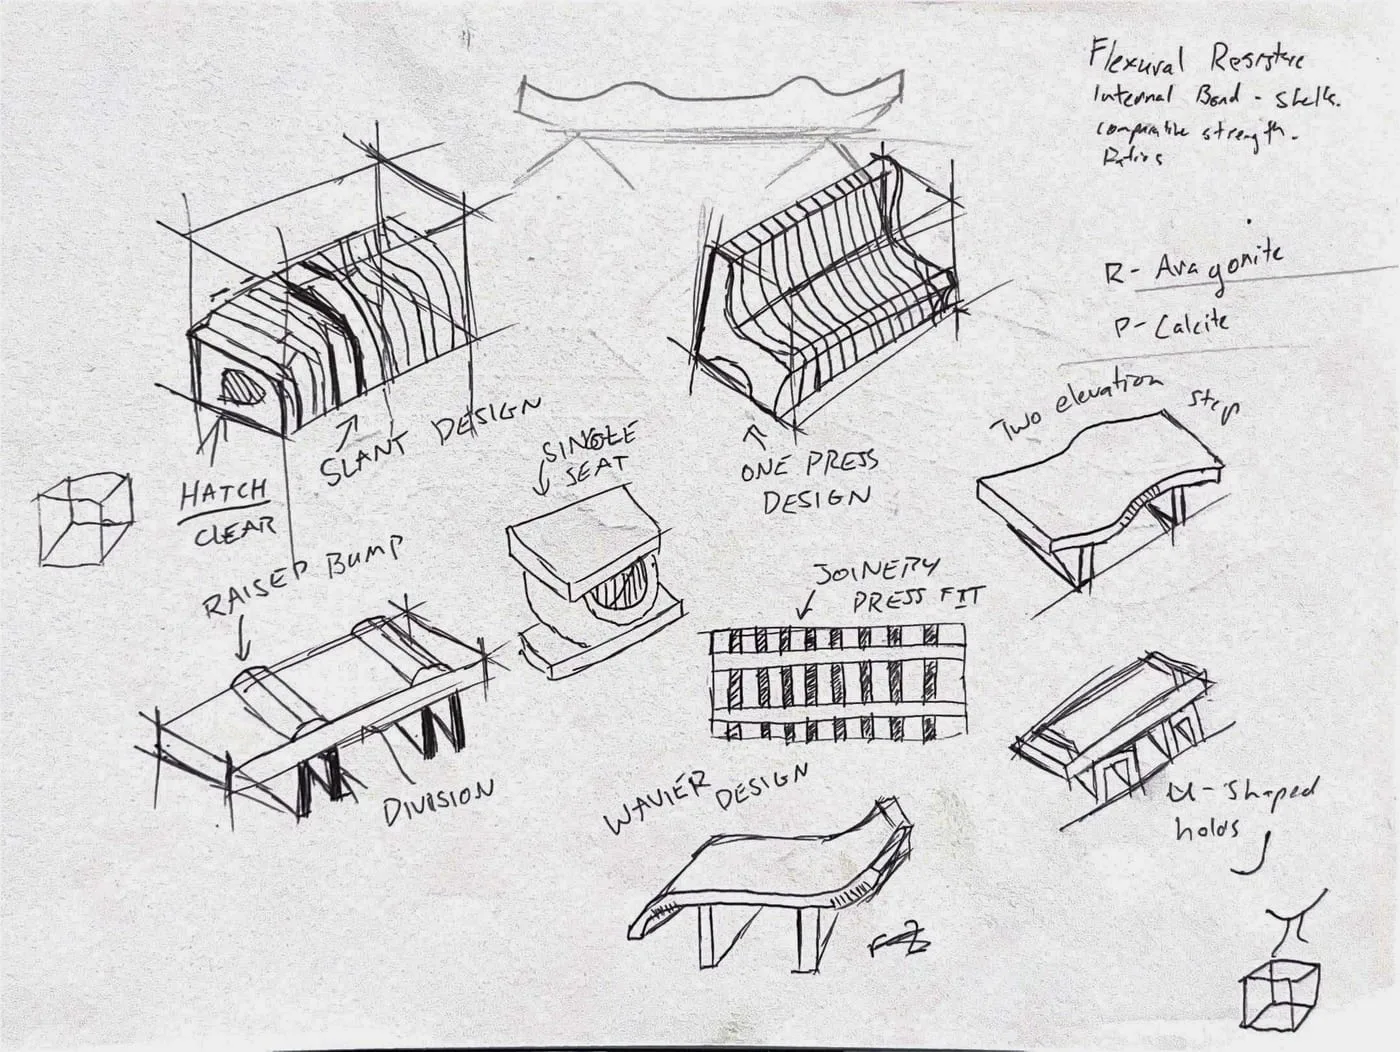 Flexural Resistence
Internal Bond - Shells.
comparitive strength.
Ratios
R- Aragonite
P- Calcite
Two elevation
Step
SLANT DESIGN
HATCH
CLEAR
SINGLE
SEAT
ONE PRESS
DESIGN
RAISED BUMP
JOINERY
PRESS FIT
DIVISION
WAVIER
DESIGN
U-Shaped
holds